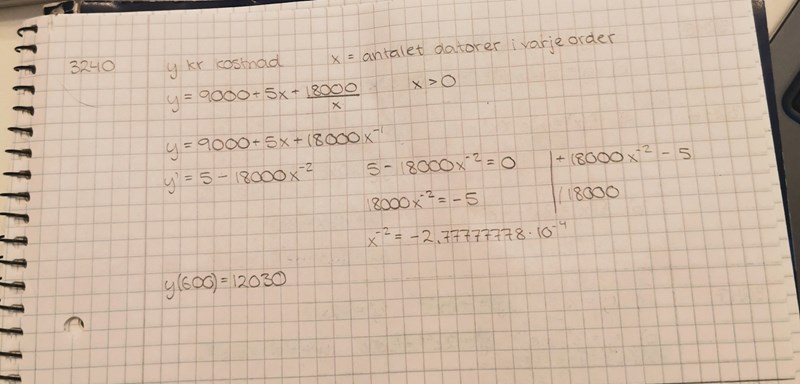 3240 y kr kostnad x = antalet datorer i varje order
y = 9000 + 5x + 18000/x x > 0
y = 9000 + 5x + 18000x⁻¹
y' = 5 - 18000x⁻² 5 - 18000x⁻² = 0 | + 18000x⁻² - 5
18000x⁻² = -5 | /18000
x⁻² = -2,77777778 · 10⁻⁴
y(600) = 12030